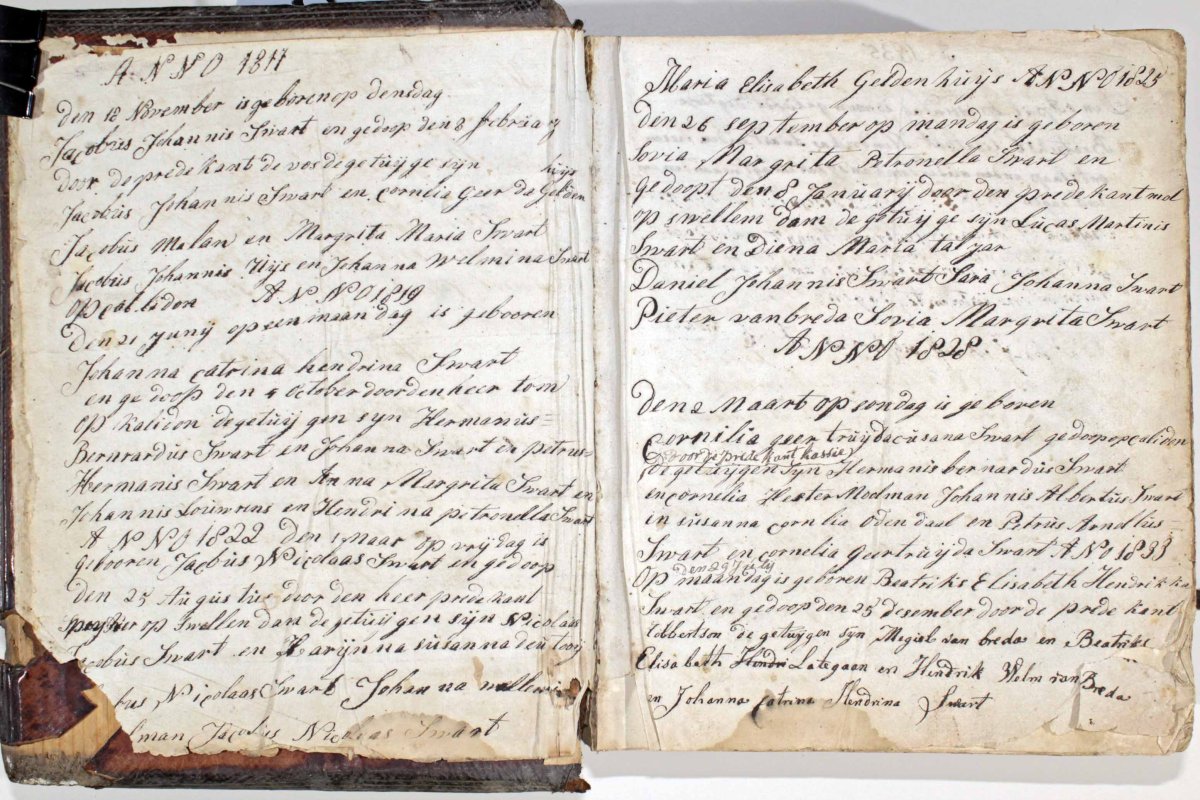 ANNO 1817
den 18 November is geboren op densdag
Jacobus Johannis Swart en gedoop den 8 februarij
door de prede kant de vos de getuijge syn
Jacobus Johannis Swart en Cornelia Geer de Gelden huijs
Jacobus Malan en Margrita Maria Swart
Jacobus Johannis Huijs en Johanna Welmina Swart
op caledon ANNO 1819
den 21 Junij op een maandag is gebooren
Johanna Catrina hendrina Swart
en gedoop den 4 October door den heer toon
op kalidon de getuij gen syn Hermanus=
Bernardus Swart en Johanna Swart en petrus=
Hermanis Swart en Anna Margrita Swart en
Johannis Louwrens en Hendrina petronella Swart
ANNO 1822 Den 1 Maar op vrijdag is
gebooren Jacobus Nicolaas Swart en gedoop
den 25 Augustus door den heer prede kant
op Swellen dam de getuijgen sijn Nicolaas
Jacobus Swart en Karijnna susanna den tooij
bus Nicolaas Swart Johanna
lman Jacobus Nicolaas Swart
Maria Elisabeth Geldenhuijs ANNO 1825
Den 26 september op mandag is geboren
Sovia Margrita Petronella Swart en
gedoopt den 8 Januarij door den prede kant mol
op swellem dam de getuij ge syn Lucas Martinis
Swart en Diena Maria taljar
Daniel Johannis Swart Sara Johanna Swart
Pieter van breda Sovia Margrita Swart
ANNO 1828
Den 2 Maart op sondag is geboren
Cornilia geer truijda susana Swart gedoop op caliden
door de prede kant kassie
de getuijgen syn Hermanis bernardus Swart
en cornelia Hester Modman Johannis Albertus Swart
en susanna cornlia Odendaal en Petrus Arnellus=
Swart en cornelia geertruijda Swart ANO 1833
den 29 July
Op maandag is geboren Beatriks Elisabeth Hendrikka
Swart en gedoop den 25 desember door de prede kant
Robbertson de getuijgen syn Megiel van breda en Beatriks
Elisabeth Hendri Lategaan en Hendrik Welm van Breda
en Johanna catrina Hendrina Swart